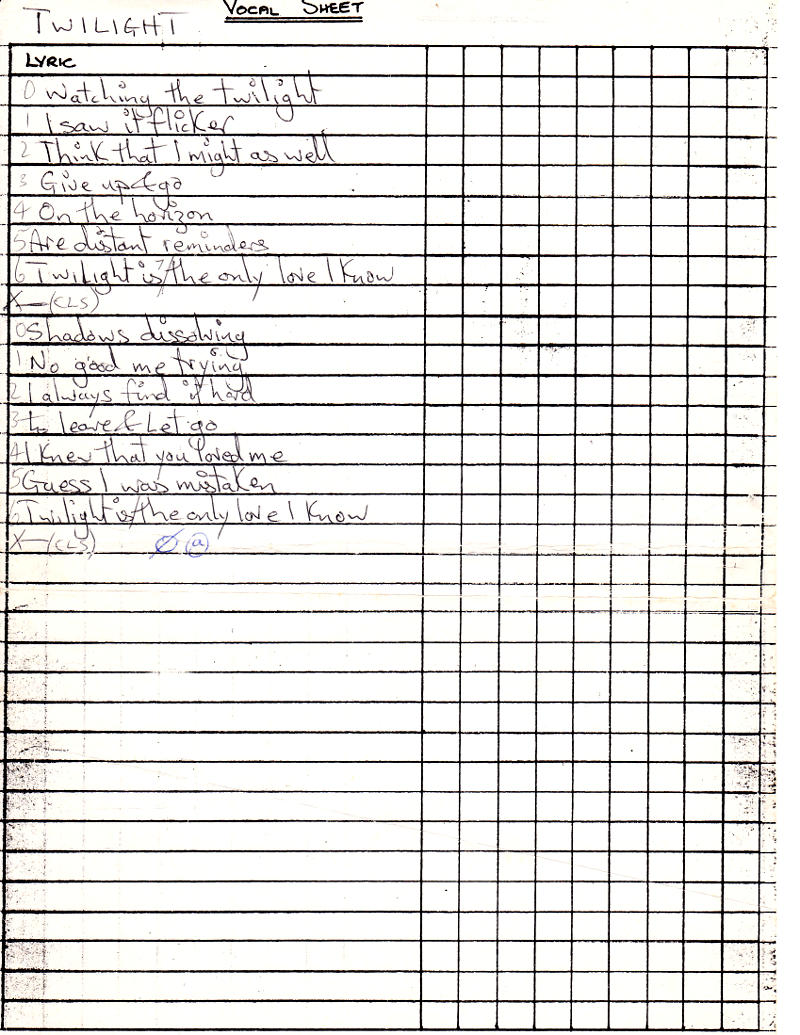 VOCAL SHEET
TWILIGHT
LYRIC
0 Watching the twilight
1 I saw it flicker
2 Think that I might as well
3 Give up & go
4 On the horizon
5 Are distant reminders
6 Twilight is/7/the only love I Know
X—(CLS)
0 Shadows dissolving
1 No good me trying
2 I always find it hard
3 to leave & Let go
4 I Knew that you loved me
5 Guess I was mistaken
6 Twilight is/the only/love I Know
X—(CLS) Ø a